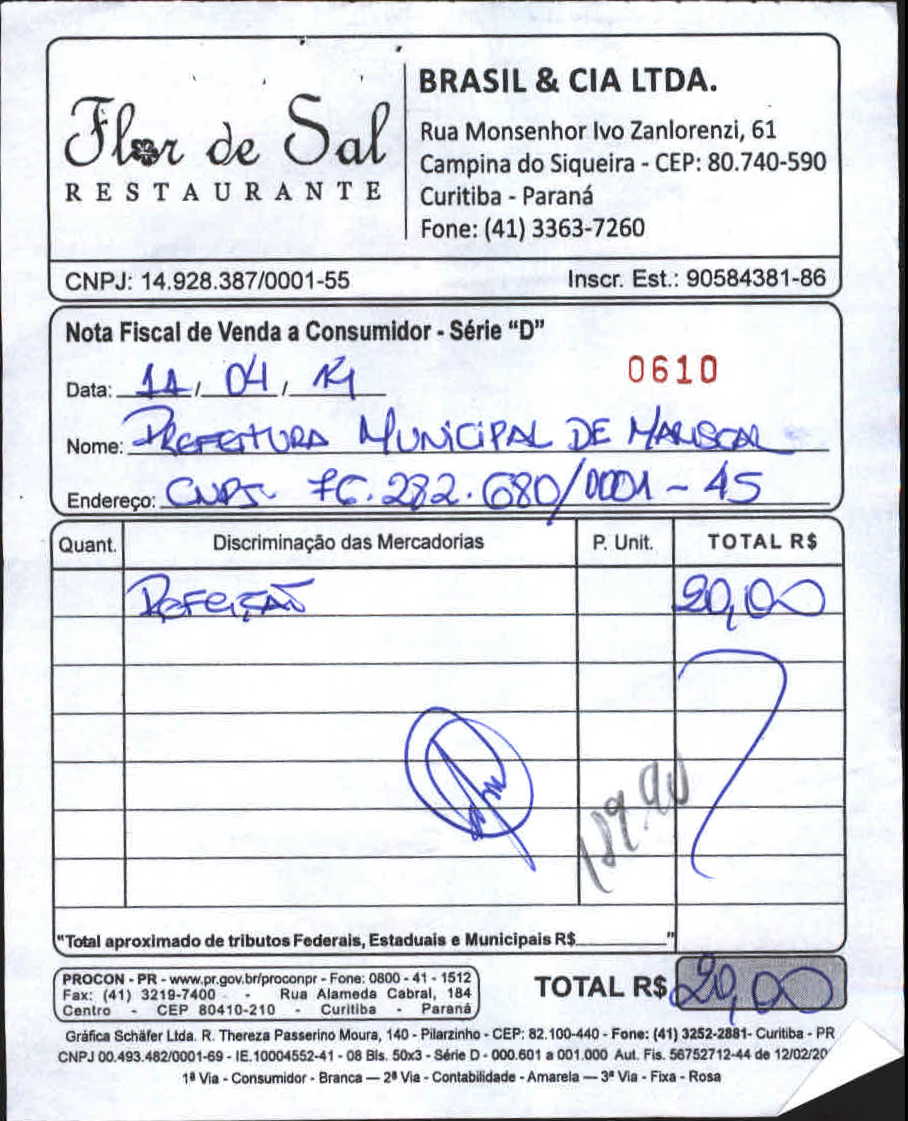 Flor de Sal
RESTAURANTE
BRASIL & CIA LTDA.
Rua Monsenhor Ivo Zanlorenzi, 61
Campina do Siqueira - CEP: 80.740-590
Curitiba - Paraná
Fone: (41) 3363-7260
CNPJ: 14.928.387/0001-55 Inscr. Est.: 90584381-86
Nota Fiscal de Venda a Consumidor - Série “D”
0610
Data: 11 / 04 / 14
Nome: PREFEITURA MUNICIPAL DE
Endereço: CNPJ 76.282.680/0001-45
Quant. Discriminação das Mercadorias P. Unit. TOTAL R$
REFEIÇÃO 20,00
189.90
"Total aproximado de tributos Federais, Estaduais e Municipais R$ "
PROCON - PR - www.pr.gov.br/proconpr - Fone: 0800 - 41 - 1512
Fax: (41) 3219-7400 - Rua Alameda Cabral, 184
Centro - CEP 80410-210 - Curitiba - Paraná
TOTAL R$ 20,00
Gráfica Schäfer Ltda. R. Thereza Passerino Moura, 140 - Pilarzinho - CEP: 82.100-440 - Fone: (41) 3252-2881- Curitiba - PR
CNPJ 00.493.482/0001-69 - IE.10004552-41 - 08 Bls. 50x3 - Série D - 000.601 a 001.000 Aut. Fis. 56752712-44 de 12/02/20
1ª Via - Consumidor - Branca — 2ª Via - Contabilidade - Amarela — 3ª Via - Fixa - Rosa